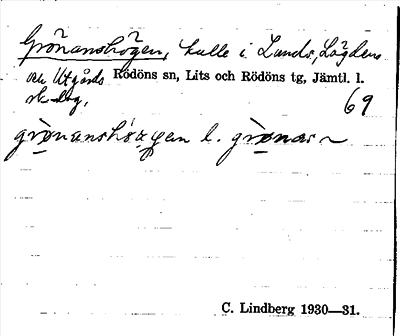 Grönanshögen, kulle i Lunds, Lägdens
och Utgårds Rödöns sn, Lits och Rödöns tg, Jämtl. l.
sk-lag, 69
grönanshögen l. grönas ~
C. Lindberg 1930—31.